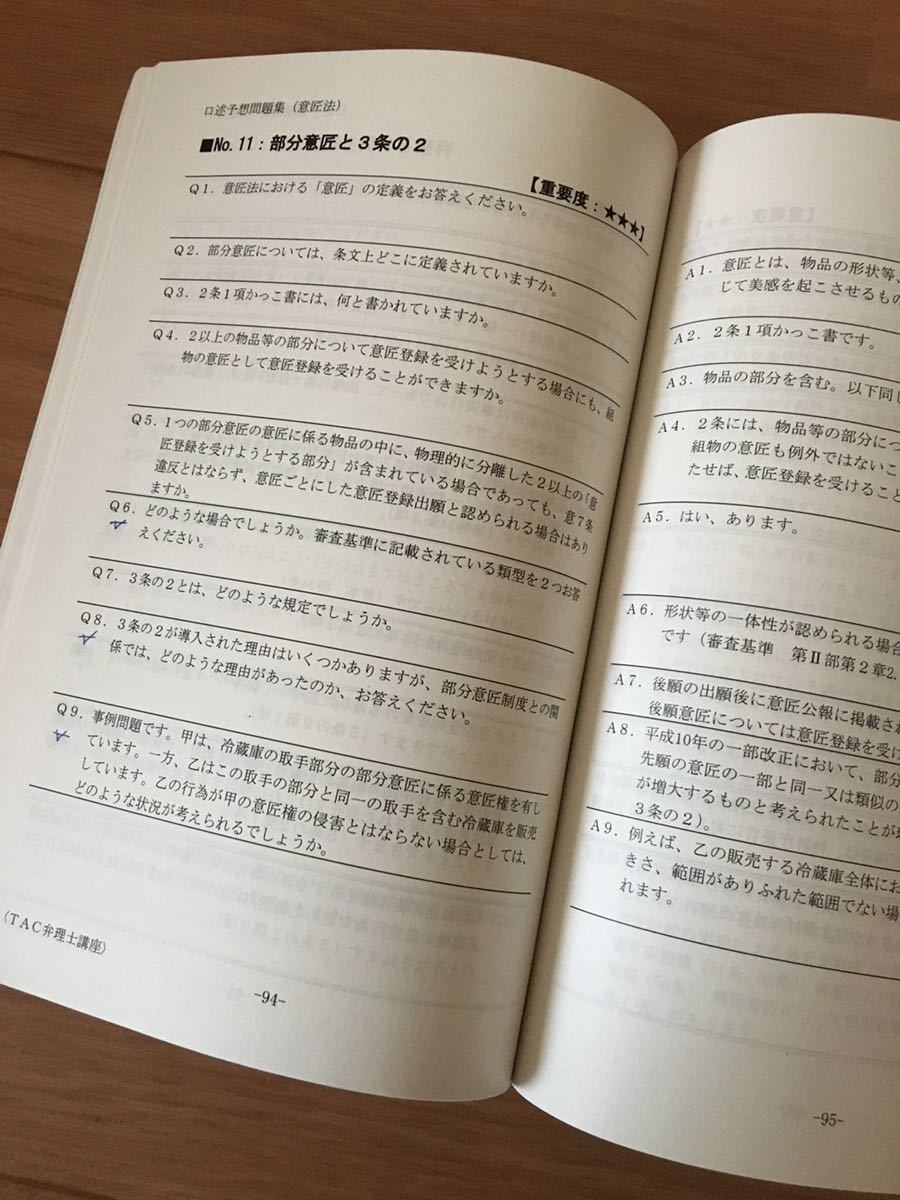 口述予想問題集(意匠法)
■No.11:部分意匠と3条の2
【重要度:★★★】
Q1.意匠法における「意匠」の定義をお答えください。
Q2.部分意匠については、条文上どこに定義されていますか。
Q3.2条1項かっこ書には、何と書かれていますか。
Q4.2以上の物品等の部分について意匠登録を受けようとする場合にも、組
物の意匠として意匠登録を受けることができますか。
Q5.1つの部分意匠の意匠に係る物品の中に、物理的に分離した2以上の「意
匠登録を受けようとする部分」が含まれている場合であっても、意7条
違反とはならず、意匠ごとにした意匠登録出願と認められる場合はあり
ますか。
Q6.どのような場合でしょうか。審査基準に記載されている類型を2つお答
えください。
Q7.3条の2とは、どのような規定でしょうか。
Q8.3条の2が導入された理由はいくつかありますが、部分意匠制度との関
係では、どのような理由があったのか、お答えください。
Q9.事例問題です。甲は、冷蔵庫の取手部分の部分意匠に係る意匠権を有し
ています。一方、乙はこの取手の部分と同一の取手を含む冷蔵庫を販売
しています。乙の行為が甲の意匠権の侵害とはならない場合としては、
どのような状況が考えられるでしょうか。
〈TAC弁理士講座〉
-94-
A1.意匠とは、物品の形状等、
じて美感を起こさせるもの
A2.2条1項かっこ書です。
A3.物品の部分を含む。以下同じ
A4.2条には、物品等の部分につ
組物の意匠も例外ではないこ
たせば、意匠登録を受けること
A5.はい、あります。
A6.形状等の一体性が認められる場合
です(審査基準 第Ⅱ部第2章2.
A7.後願の出願後に意匠公報に掲載され
後願意匠については意匠登録を受け
A8.平成10年の一部改正において、部分
先願の意匠の一部と同一又は類似の
が増大するものと考えられたことが
3条の2)。
A9.例えば、乙の販売する冷蔵庫全体にお
きさ、範囲がありふれた範囲でない場
れます。
-95-